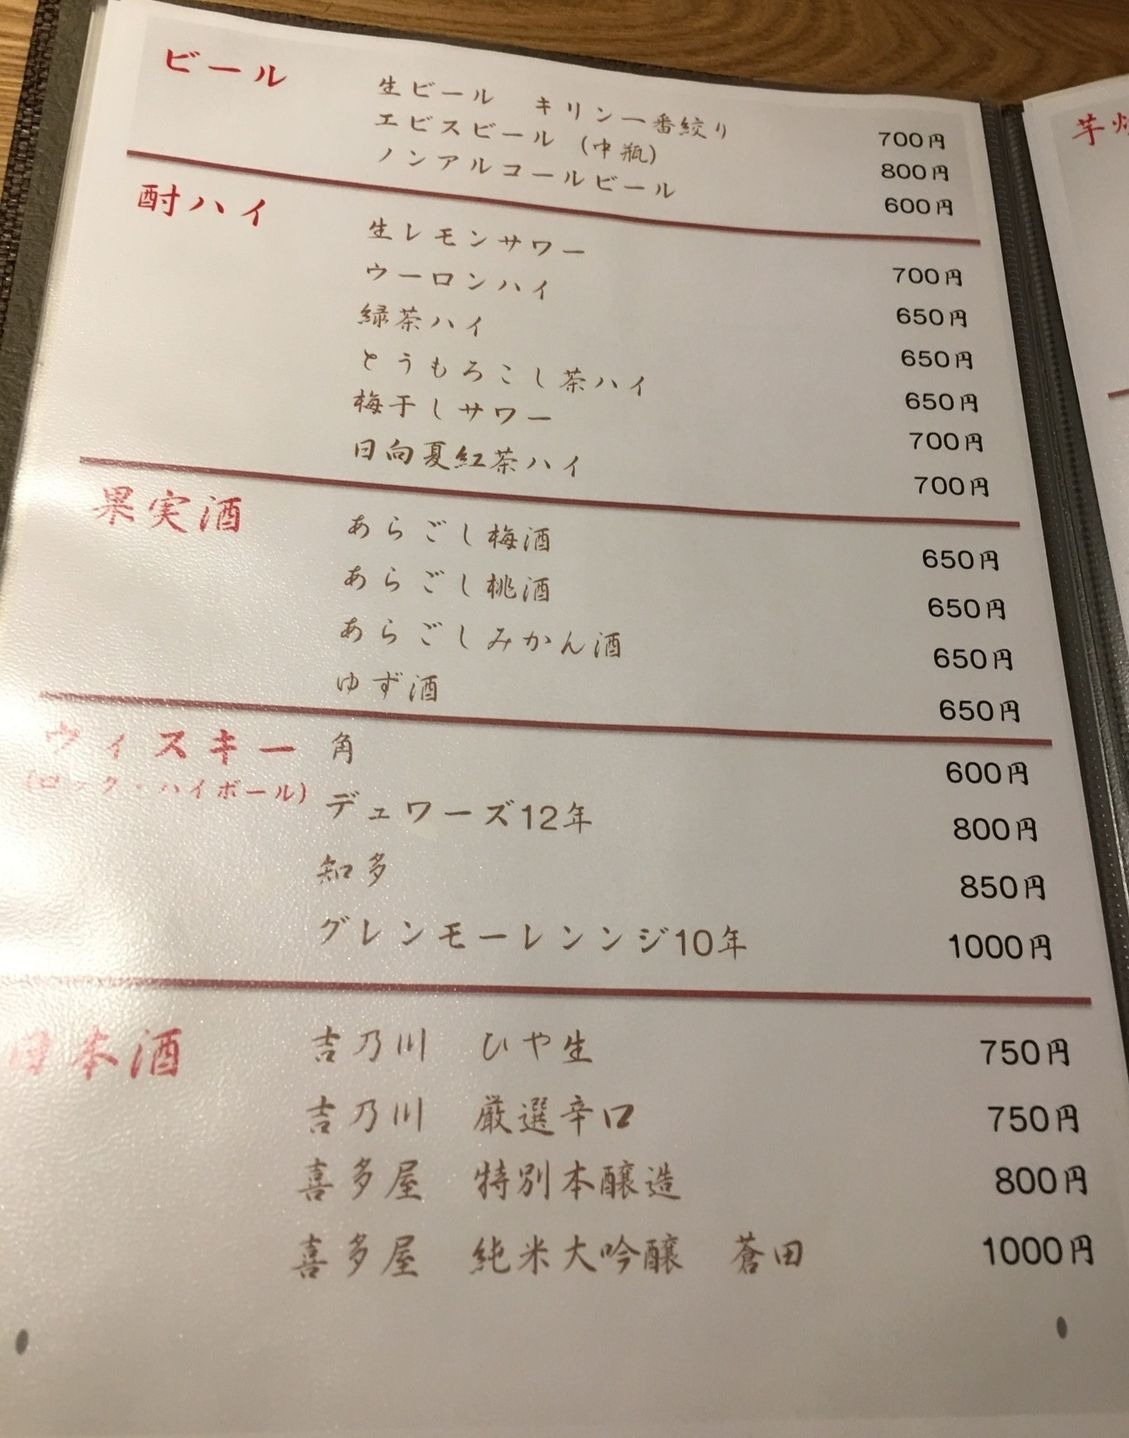 ビール
生ビール　キリン一番絞り 700円
エビスビール（中瓶） 800円
ノンアルコールビール 600円
酎ハイ
生レモンサワー 700円
ウーロンハイ 650円
緑茶ハイ 650円
とうもろこし茶ハイ 650円
梅干しサワー 700円
日向夏紅茶ハイ 700円
果実酒
あらごし梅酒 650円
あらごし桃酒 650円
あらごしみかん酒 650円
ゆず酒 650円
ウィスキー
（ロック・ハイボール）
角 600円
デュワーズ12年 800円
知多 850円
グレンモーレンンジ10年 1000円
日本酒
吉乃川　ひや生 750円
吉乃川　厳選辛口 750円
喜多屋　特別本醸造 800円
喜多屋　純米大吟醸　蒼田 1000円
芋